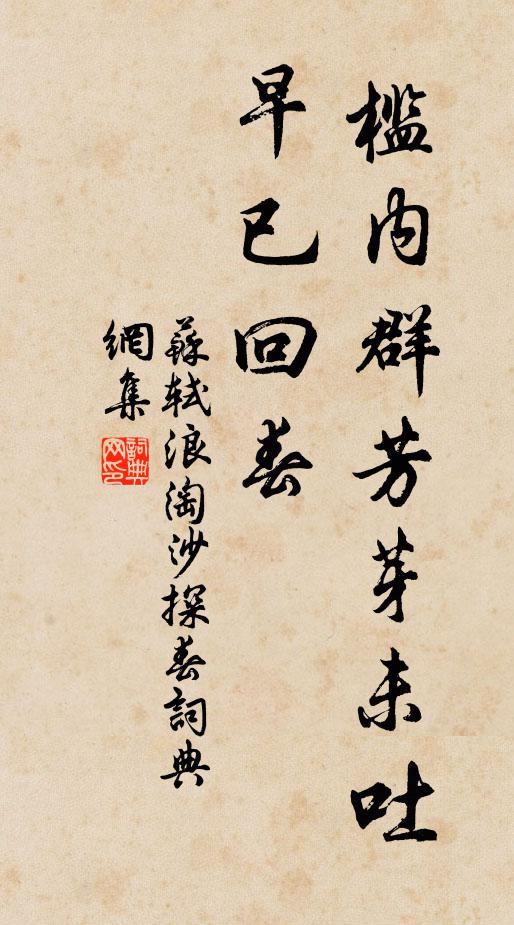 槛内群芳芽未吐
早已回春
蘇軾浪淘沙探春詞典
網集
詞典
网印